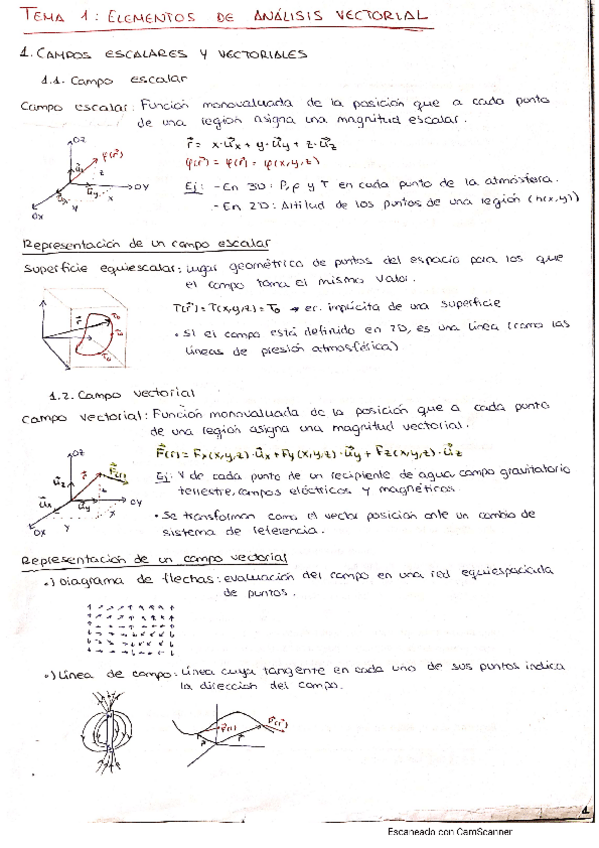 TEMA 1: ELEMENTOS DE ANÁLISIS VECTORIAL
1. CAMPOS ESCALARES Y VECTORIALES
1.1. Campo escalar
Campo escalar: Función monovaluada de la posición que a cada punto
de una región asigna una magnitud escalar.
r⃗ = x·u⃗x + y·u⃗y + z·u⃗z
φ(r⃗) = φ(r⃗) = φ(x,y,z)
Ej: - En 3D: P, ρ y T en cada punto de la atmósfera.
- En 2D: Altitud de los puntos de una región (h(x,y))
OZ
φ(r⃗)
OY
OX
Representación de un campo escalar
Superficie equiescalar: lugar geométrico de puntos del espacio para los que
el campo toma el mismo valor.
T(r⃗) = T(x,y,z) = T₀ → ec. implícita de una superficie
• Si el campo está definido en 2D, es una línea (como las
líneas de presión atmosférica)
1.2. Campo vectorial
Campo vectorial: Función monovaluada de la posición que a cada punto
de una región asigna una magnitud vectorial.
F⃗(r) = Fx(x,y,z)·u⃗x + Fy(x,y,z)·u⃗y + Fz(x,y,z)·u⃗z
Ej: V de cada punto de un recipiente de agua, campo gravitatorio
terrestre, campos eléctricos y magnéticos.
• Se transforman como el vector posición ante un cambio de
sistema de referencia.
OZ
OY
OX
Representación de un campo vectorial
•) Diagrama de flechas: evaluación del campo en una red equiespaciada
de puntos.
•) Línea de campo: Línea cuya tangente en cada uno de sus puntos indica
la dirección del campo.
1
Escaneado con CamScanner